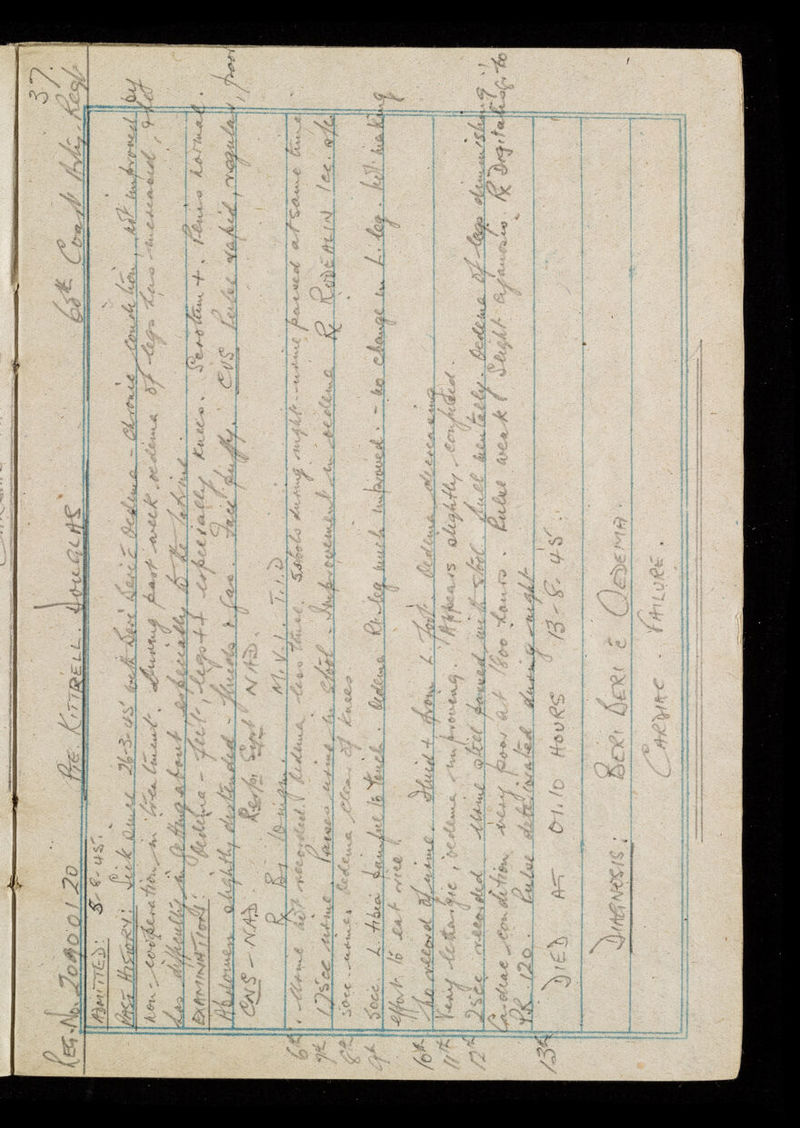 37.
REG. No. 20900120 PTE. KITTRELL. DOUGLAS 65th Coast Arty. Regt
ADMITTED: 5-8-45.
PAST HISTORY: Sick since 26-3-45 with Beri Beri c̄ Oedema - Chronic condition, not improved by
non-cooperation in treatment. During past week oedema of legs has increased, & Pt
has difficulty in getting about especially to the latrine.
EXAMINATION: Oedema - feet, legs ++ especially knees. Scrotum +. Penis normal.
Abdomen slightly distended - fluids & gas. Face puffy. CVS Pulse rapid, regular, poor
CNS - NAD. Resp. Syst NAD.
R By M.V.I. T.I.D
6th. Urine not recorded. Oedema less tense. 5 stools during night - urine passed at same time
7th 175cc urine. Passes urine in stool. Improvement in oedema Rx RUDEALIN 1cc.
8th 50cc urine. Oedema clear of knees
9th 50cc L tibia painful to touch. Oedema Rt. leg much improved. - No change in L. leg. Not making
effort to eat rice!
10th No record of urine. Fluid + from L foot. Oedema decreasing
11th Very lethargic, oedema improving. Appears slightly confused.
12th 25cc recorded. Urine still passed with stool. Dull mentally. Oedema of legs diminishing!!
Cardiac condition very poor at 1800 hours. Pulse weak! Slight cyanosis. Rx Digitalis
P.R. 120. Pulse deteriorated during night
13th DIED AT 01.10 HOURS 13-8-45.
DIAGNOSIS: BERI BERI c̄ OEDEMA.
CARDIAC. FAILURE.